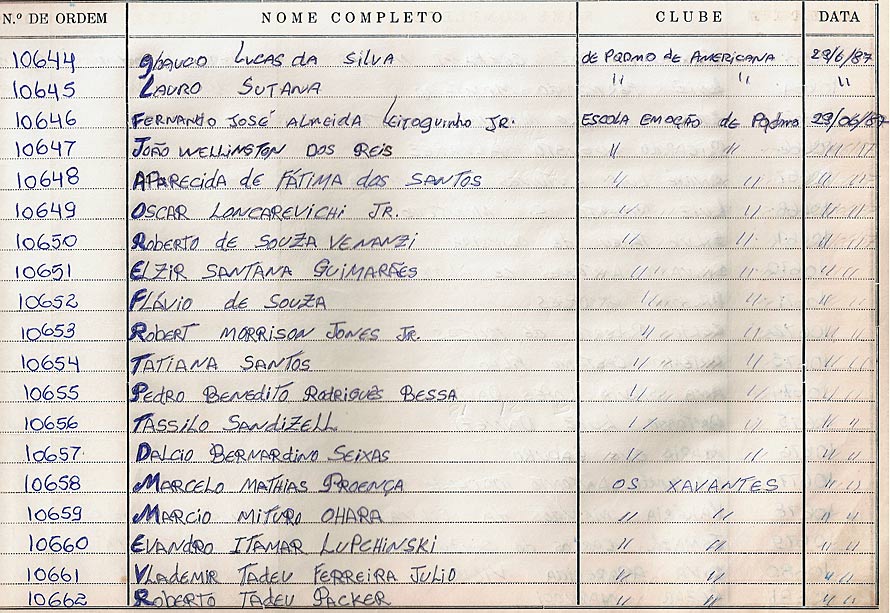 N.º DE ORDEM NOME COMPLETO CLUBE DATA
10644 Glauco Lucas da Silva de Pqdmo de Americana 29/6/87
10645 Lauro Sutana " " "
10646 Fernando José Almeida Leitoguinho Jr. Escola Emoção de Pqdmo 29/06/87
10647 João Wellington dos Reis " " " "
10648 Aparecida de Fátima dos Santos " " " "
10649 Oscar Loncarevichi Jr. " " " "
10650 Roberto de Souza Venanzi " " " "
10651 Elzir Santana Guimarães " " " " "
10652 Flávio de Souza " " " "
10653 Robert Morrison Jones Jr. " " " "
10654 Tatiana Santos " " " "
10655 Pedro Benedito Rodrigues Bessa " " " "
10656 Tassilo Sandizell " " " "
10657 Dalcio Bernardino Seixas " " " "
10658 Marcelo Mathias Proença Os Xavantes " "
10659 Marcio Mituro Ohara " " " "
10660 Evandro Itamar Lupchinski " " " "
10661 Vlademir Tadeu Ferreira Julio " " " "
10662 Roberto Tadeu Packer " " " "